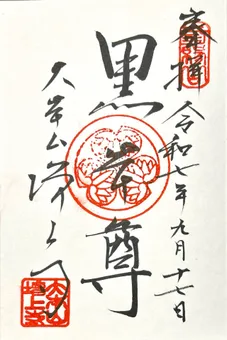 奉拝
令和七年九月十七日
黒本尊
大本山増上寺
大本山
増上寺